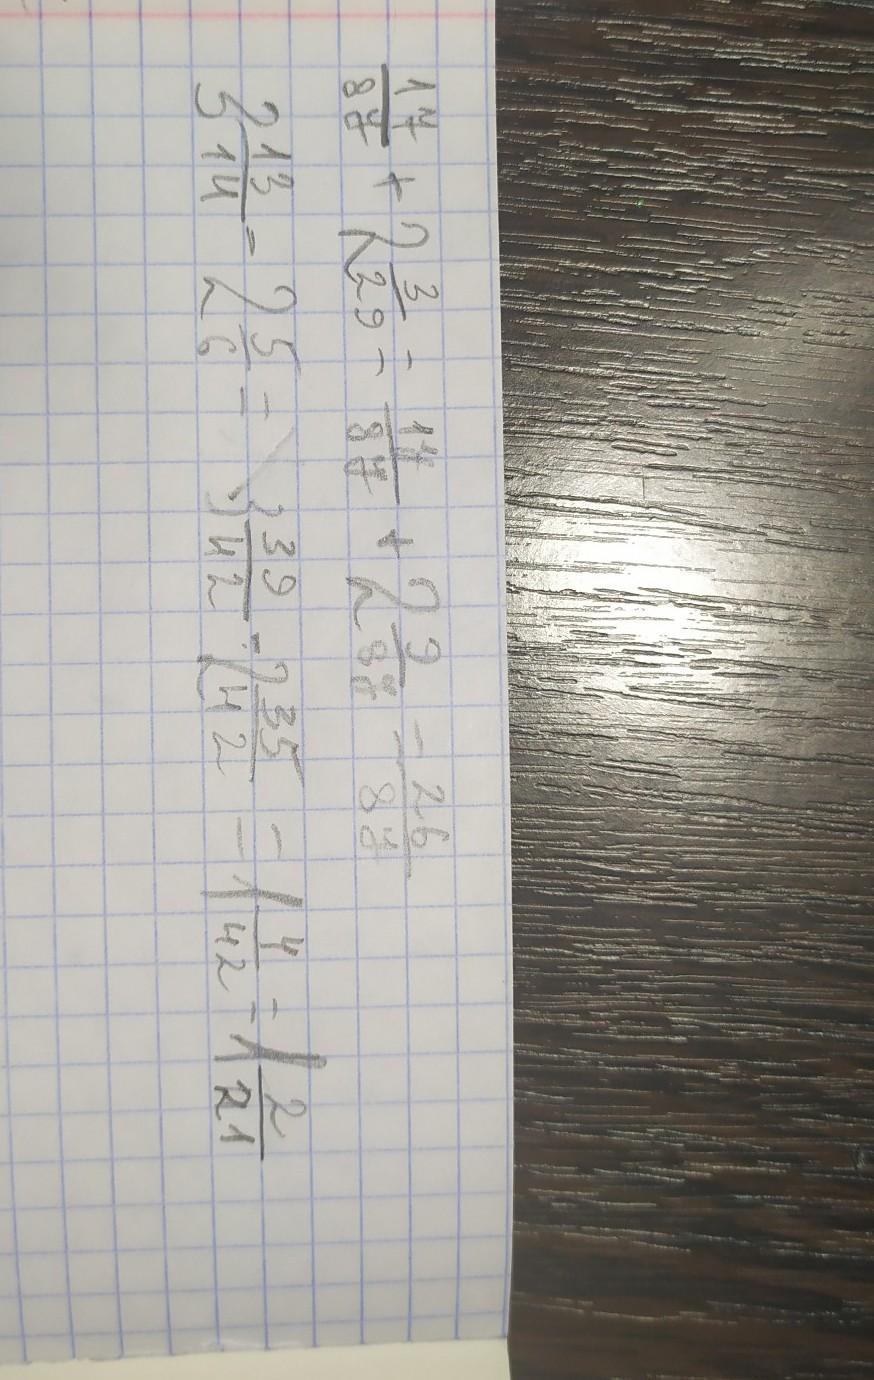 17/87 + 2 3/29 = 17/87 + 2 9/87 = 26/87
3 13/14 - 2 5/6 = 3 39/42 - 2 35/42 = 1 4/42 = 1 2/21